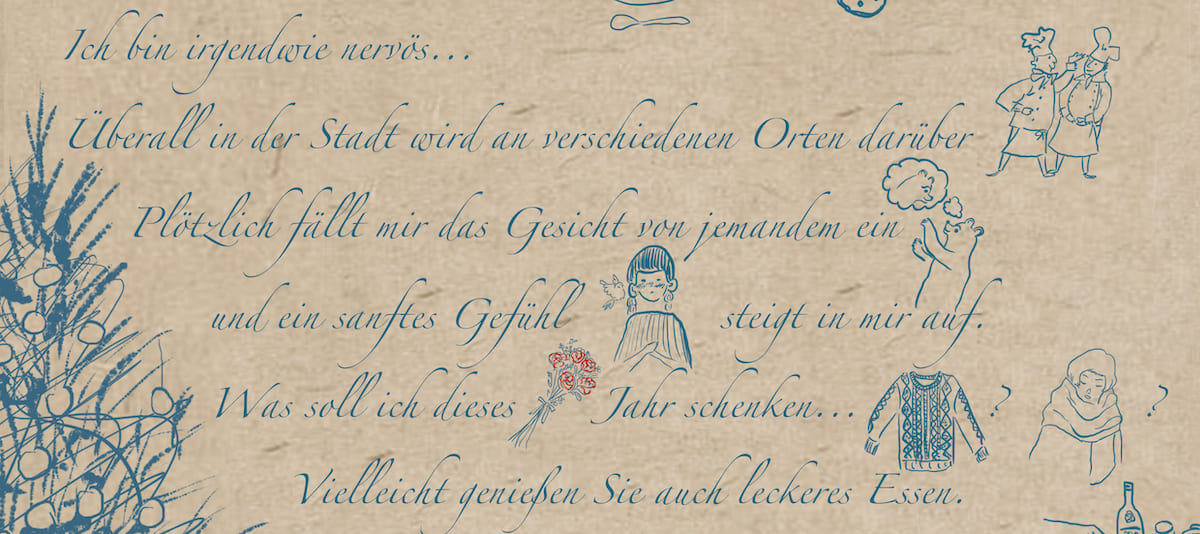 Ich bin irgendwie nervös...
Überall in der Stadt wird an verschiedenen Orten darüber
Plötzlich fällt mir das Gesicht von jemandem ein
und ein sanftes Gefühl steigt in mir auf.
Was soll ich dieses Jahr schenken... ? ?
Vielleicht genießen Sie auch leckeres Essen.